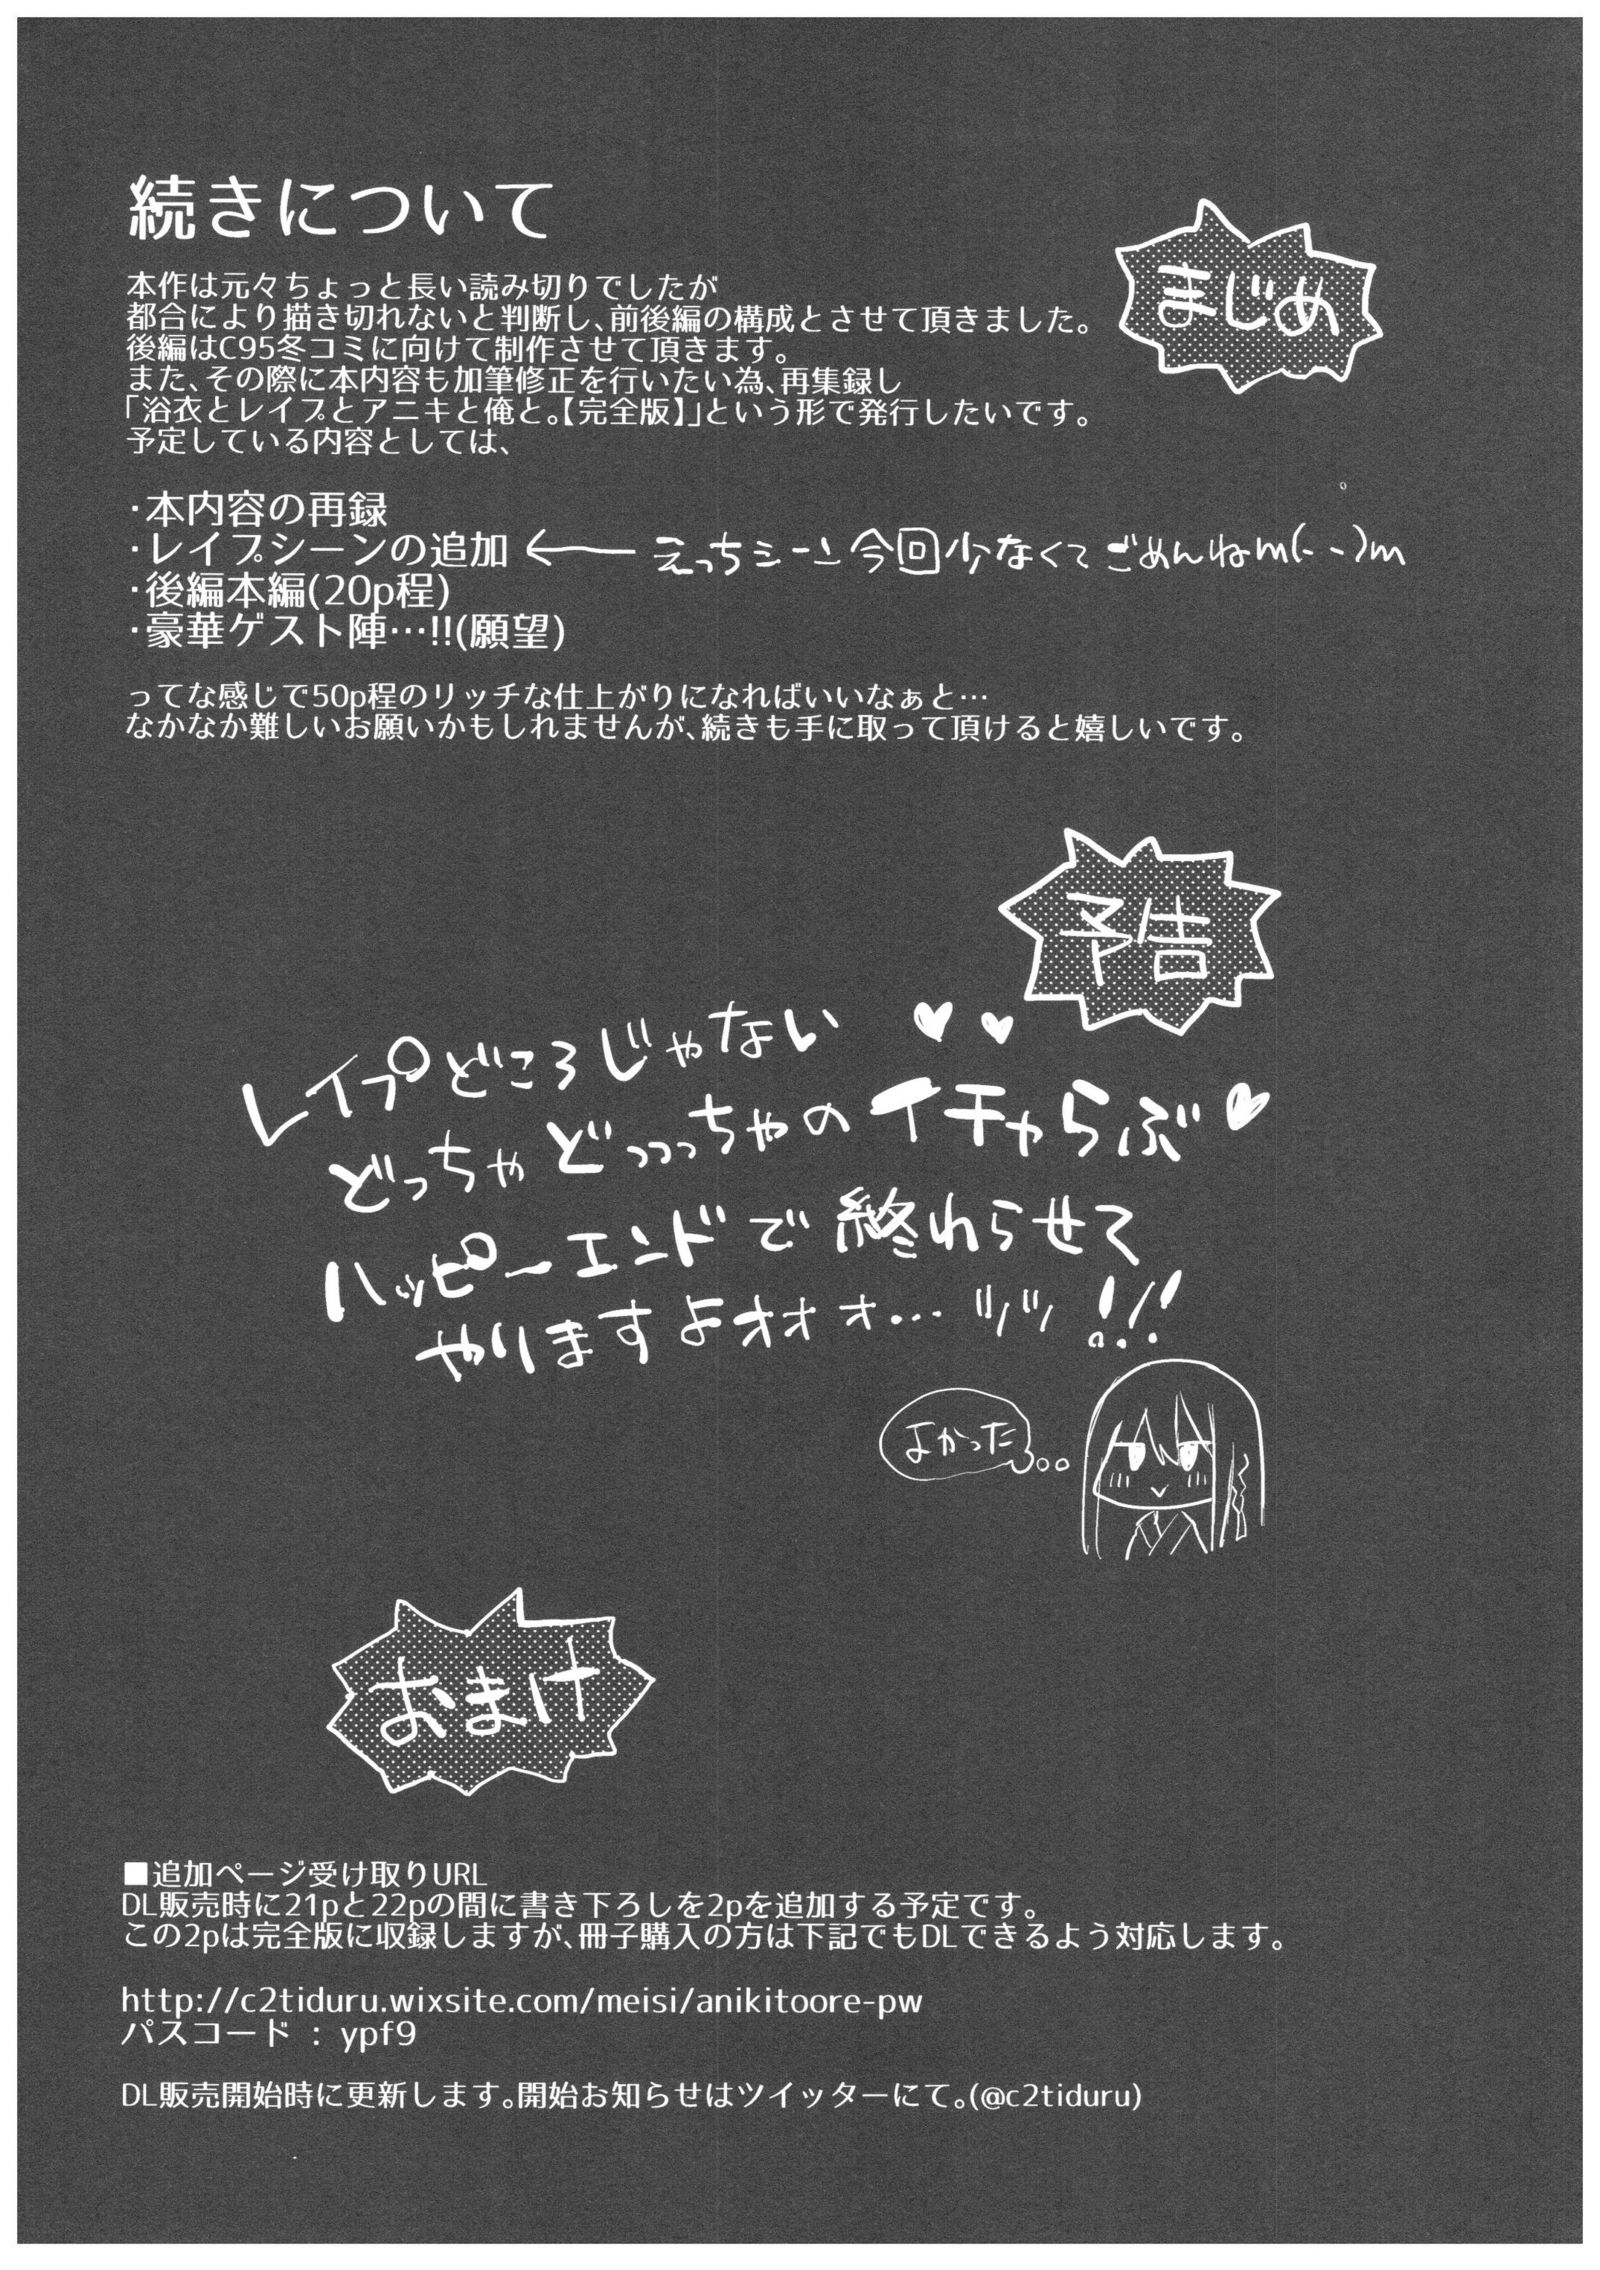 続きについて
まじめ
本作は元々ちょっと長い読み切りでしたが
都合により描き切れないと判断し、前後編の構成とさせて頂きました。
後編はC95冬コミに向けて制作させて頂きます。
また、その際に本内容も加筆修正を行いたい為、再集録し
「浴衣とレイプとアニキと俺と。【完全版】」という形で発行したいです。
予定している内容としては、
・本内容の再録
・レイプシーンの追加 ← えっちシーン今回少なくてごめんねm(- -)m
・後編本編(20p程)
・豪華ゲスト陣…!!(願望)
ってな感じで50p程のリッチな仕上がりになればいいなぁと…
なかなか難しいお願いかもしれませんが、続きも手に取って頂けると嬉しいです。
予告
レイプどころじゃない ♥♥
どっちゃどっっっちゃのイチャらぶ♥
ハッピーエンドで終わらせて
やりますよオオォ…ッッ!!!
よかった
おまけ
■追加ページ受け取りURL
DL販売時に21pと22pの間に書き下ろしを2pを追加する予定です。
この2pは完全版に収録しますが、冊子購入の方は下記でもDLできるよう対応します。
http://c2tiduru.wixsite.com/meisi/anikitoore-pw
パスコード : ypf9
DL販売開始時に更新します。開始お知らせはツイッターにて。(@c2tiduru)